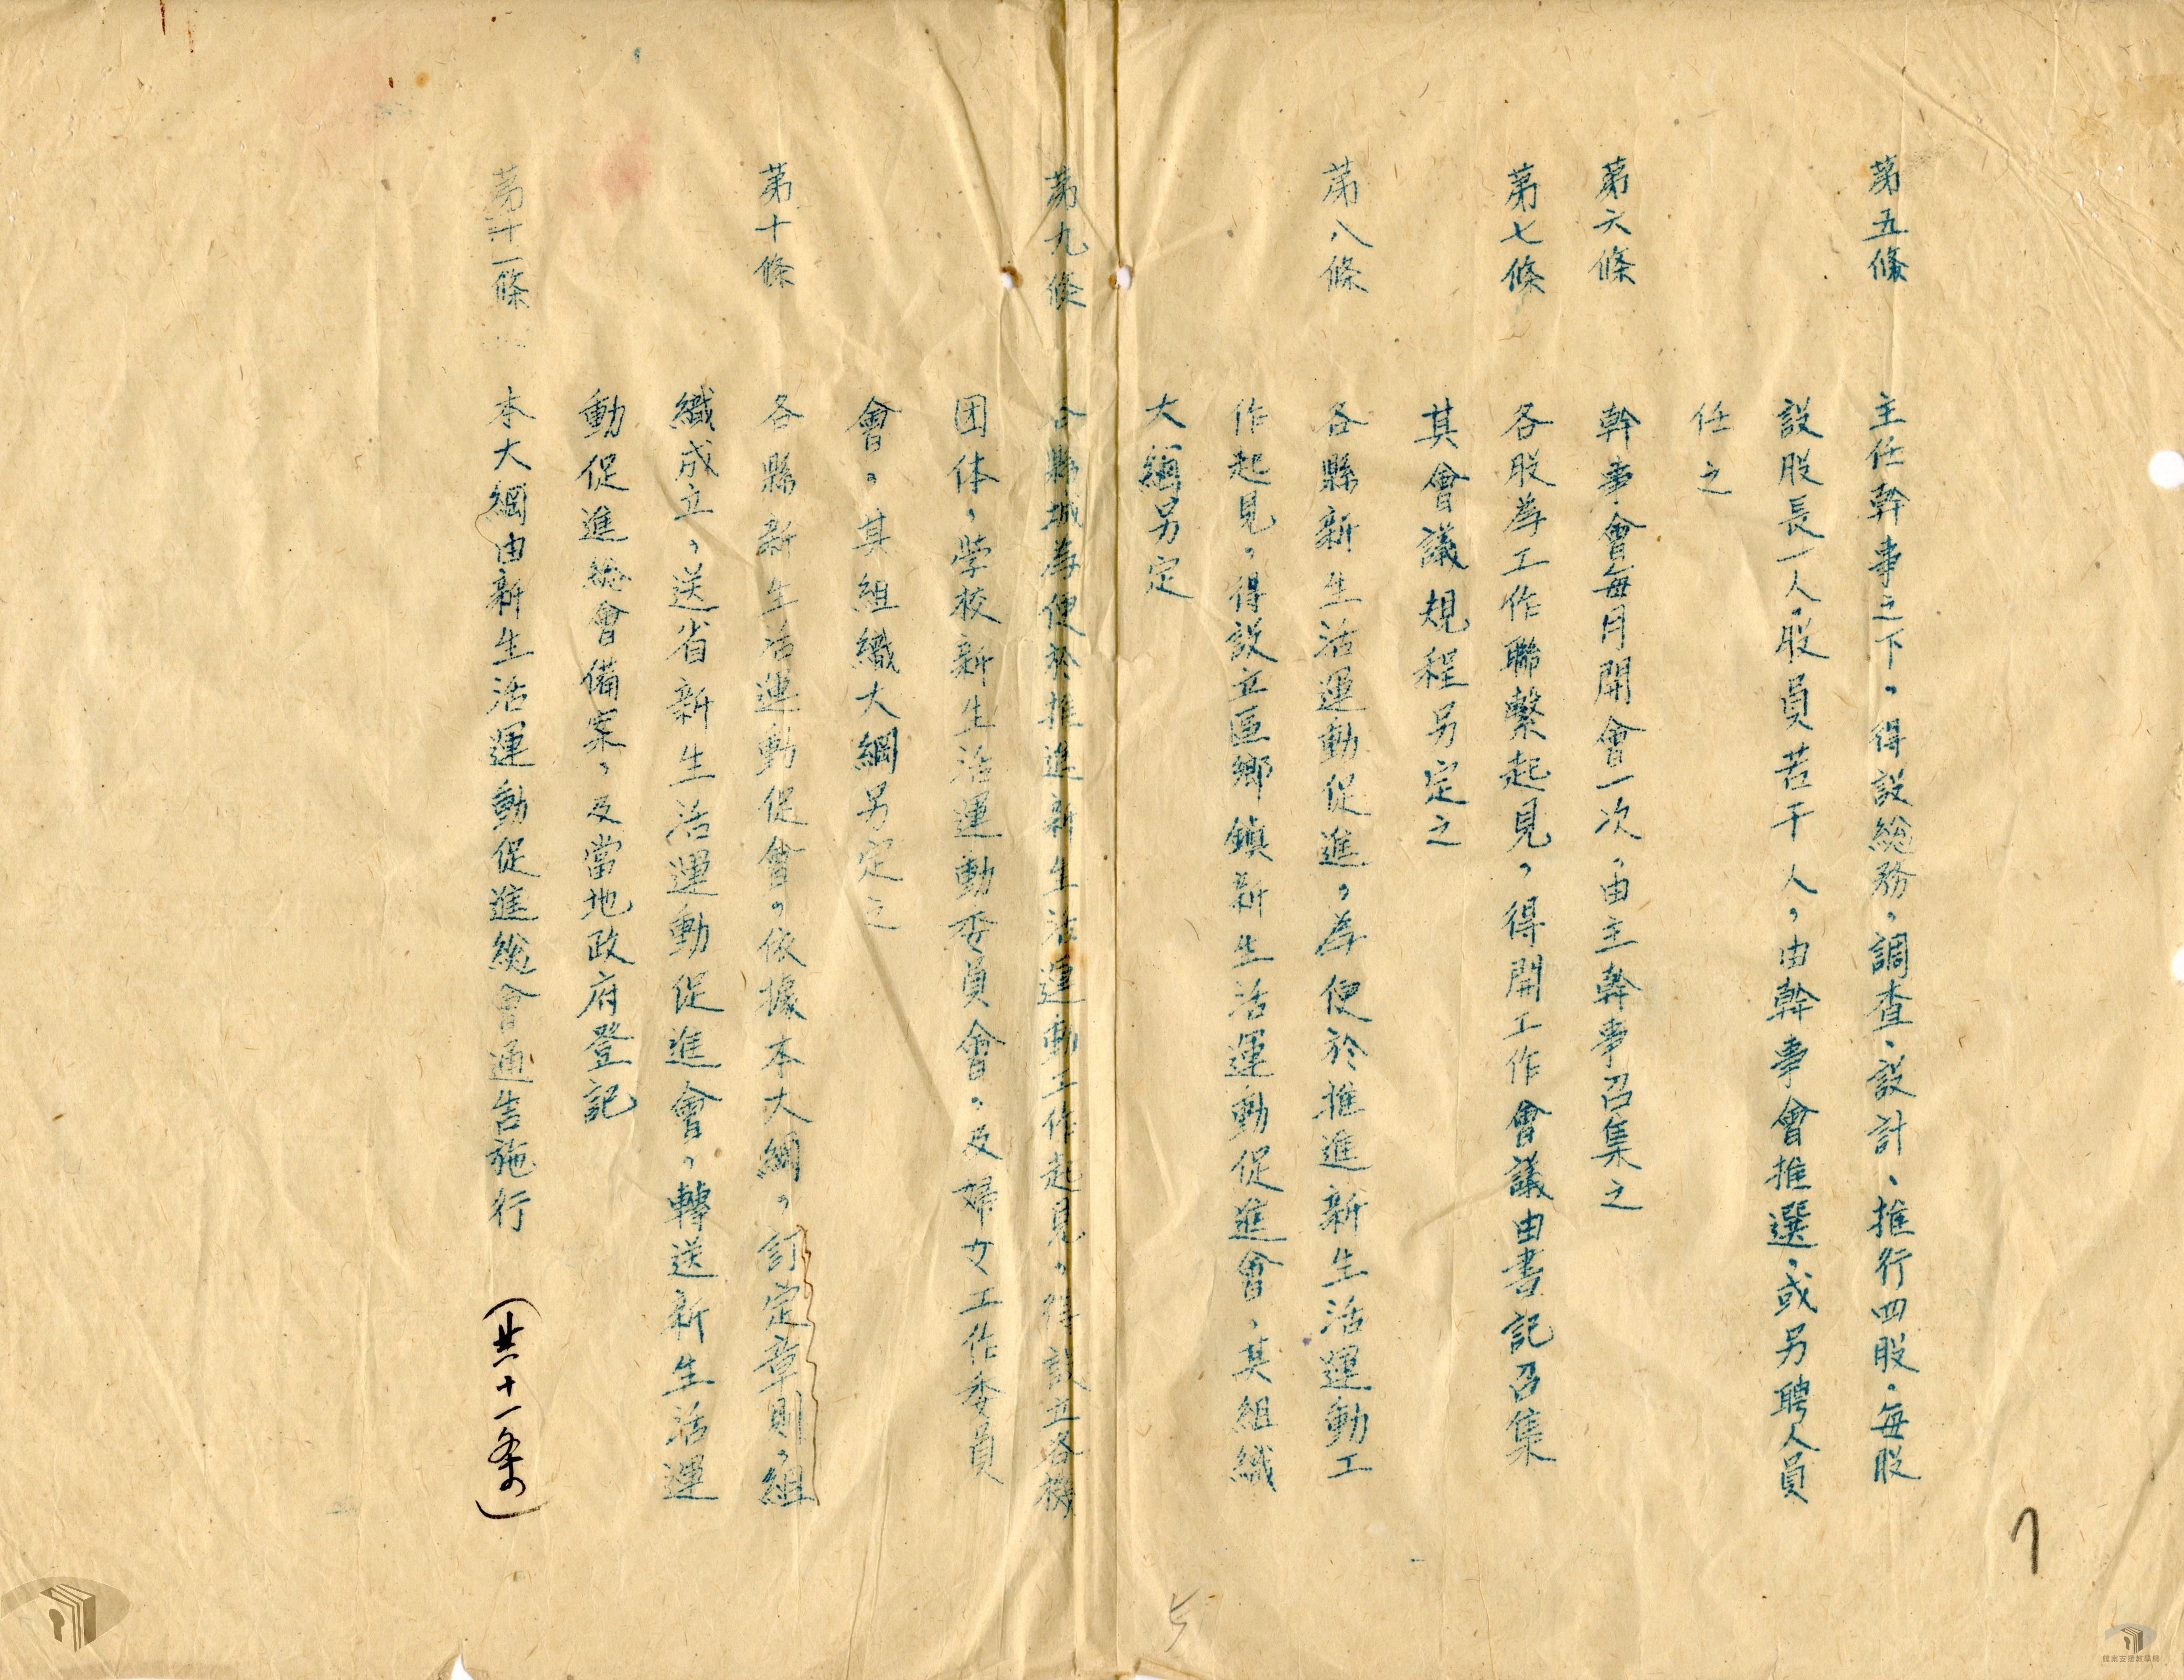 第五條 主任幹事之下，得設總務、調查、設計、推行四股，每股
設股長一人，股員若干人，由幹事會推選，或另聘人員
任之
第六條 幹事會每月開會一次，由主幹事召集之
第七條 各股為工作聯繫起見，得開工作會議由書記召集
其會議規程另定之
第八條 各縣新生活運動促進，為便於推進新生活運動工
作起見，得設立區鄉鎮新生活運動促進會，其組織
大綱另定
第九條 各縣城為便於推進新生活運動工作起見，得設立各機
团体，學校新生活運動委員會，及婦女工作委員
會，其組織大綱另定之
第十條 各縣新生活運動促會，依據本大綱，訂定章則，組
織成立，送省新生活運動促進會，轉送新生活運
動促進總會備案，及當地政府登記
第十一條 本大綱由新生活運動促進總會通告施行 （共十一条）
7